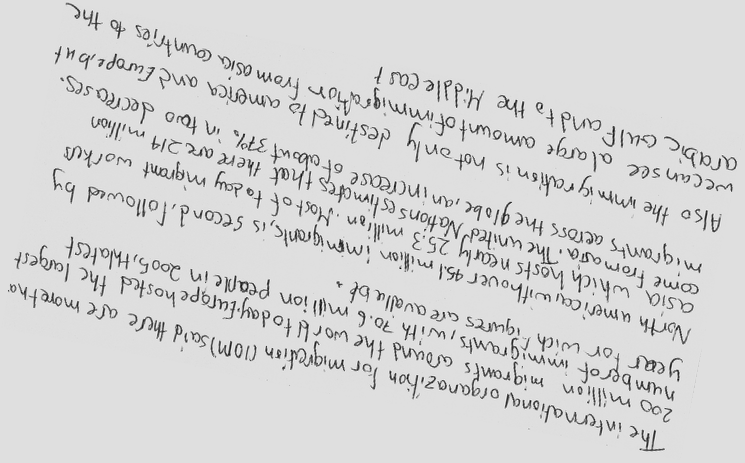 The international organazition for migretion (IOM) said there are moretha
200 million migrants around the world today. Europe hosted the largest
number of immigrants, with 70.6 million people in 2005, thlatest
year for wich figures are availabl.
North america, with over 45.1 million immigrants, is second, followed by
asia which hosts nearly 25.3 million. Most of today migrant workers
come from asia. The united Nations estimates that there are 214 million
migrants across the globe, an increase of about 37% in two decreases.
Also the immigration is not only destined to america and Europe, but
we can see a large amount of immigration from asia countries to the
arabic gulf and to the Middle east